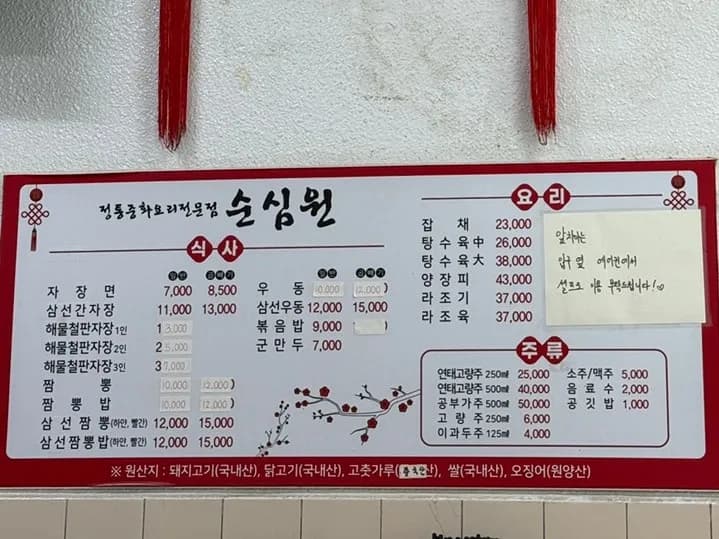 정통중화요리전문점 순심원
식사
일반 곱빼기
자장면 7,000 8,500
삼선간자장 11,000 13,000
해물철판자장1인 13,000
해물철판자장2인 25,000
해물철판자장3인 37,000
짬뽕 10,000 12,000
짬뽕밥 10,000 12,000
삼선짬뽕(하얀, 빨간) 12,000 15,000
삼선짬뽕밥(하얀, 빨간) 12,000 15,000
일반 곱빼기
우동 10,000 12,000
삼선우동 12,000 15,000
볶음밥 9,000
군만두 7,000
요리
잡채 23,000
탕수육中 26,000
탕수육大 38,000
양장피 43,000
라조기 37,000
라조육 37,000
앞치마는
입구 옆 에어컨에서
셀프로 이용 부탁드립니다!
주류
연태고량주 250㎖ 25,000
연태고량주 500㎖ 40,000
공부가주 500㎖ 50,000
고량주 250㎖ 6,000
이과두주 125㎖ 4,000
소주/맥주 5,000
음료수 2,000
공깃밥 1,000
※ 원산지 : 돼지고기(국내산), 닭고기(국내산), 고춧가루(중국산), 쌀(국내산), 오징어(원양산)